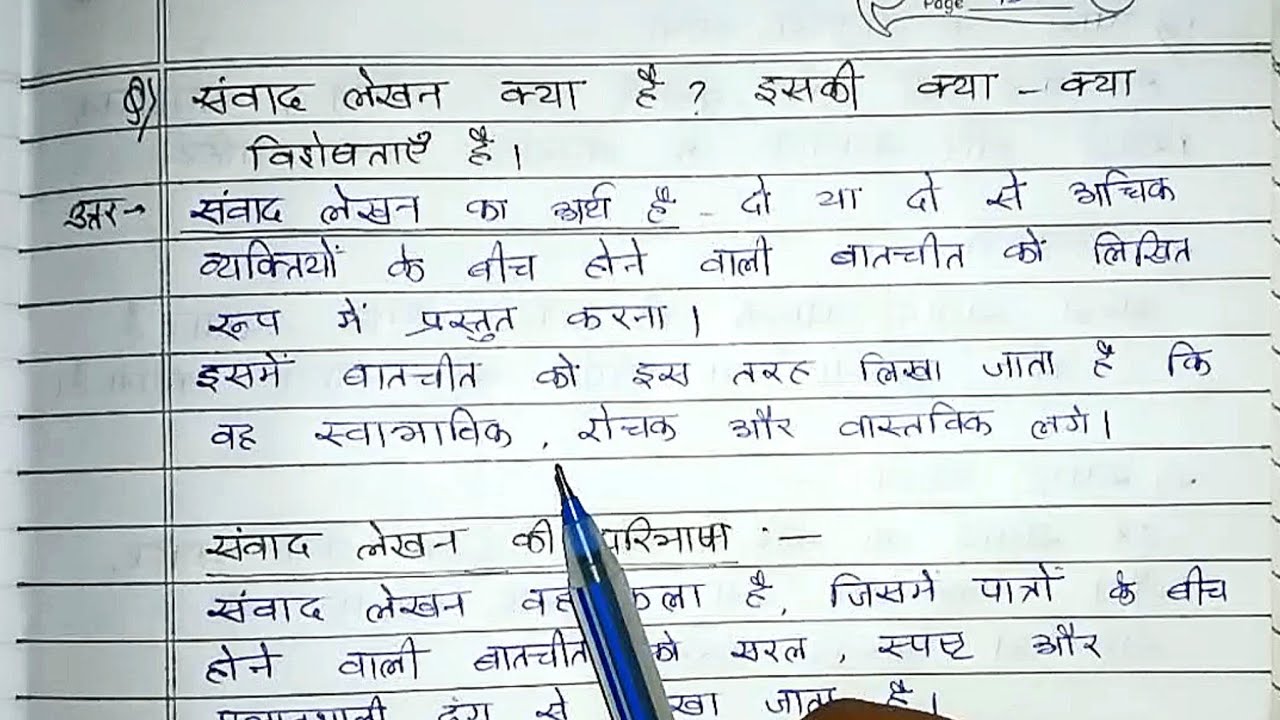 Page
Q) संवाद लेखन क्या है ? इसकी क्या - क्या
विशेषताएँ है।
उत्तर→ संवाद लेखन का अर्थ है - दो या दो से अधिक
व्यक्तियों के बीच होने वाली बातचीत को लिखित
रूप में प्रस्तुत करना।
इसमें बातचीत को इस तरह लिखा जाता है कि
वह स्वाभाविक, रोचक और वास्तविक लगे।
संवाद लेखन की परिभाषा :—
संवाद लेखन वह कला है, जिसमें पात्रों के बीच
होने वाली बातचीत को सरल, स्पष्ट और
ढंग से जाता है।